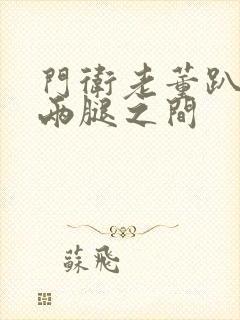 門衛老董趴
兩腿之間
蘇飛